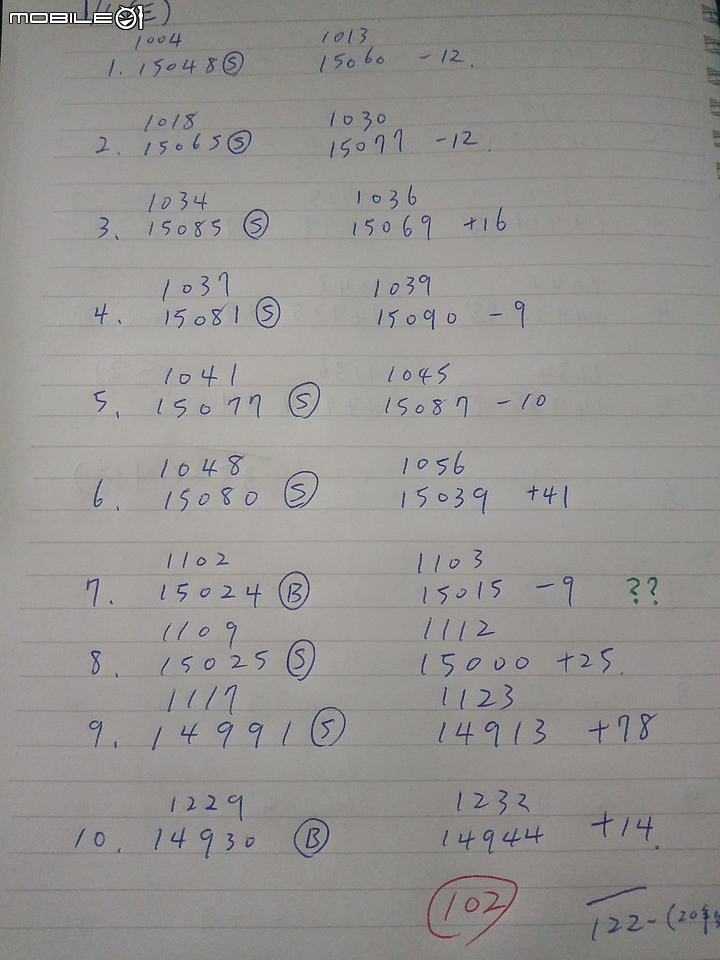 MOBILE01
1004 1013
1. 15048 Ⓢ 15060 -12.
1018 1030
2. 15065 Ⓢ 15077 -12.
1034 1036
3. 15085 Ⓢ 15069 +16
1037 1039
4. 15081 Ⓢ 15090 -9
1041 1045
5. 15077 Ⓢ 15087 -10
1048 1056
6. 15080 Ⓢ 15039 +41
1102 1103
7. 15024 Ⓑ 15015 -9 ??
1109 1112
8. 15025 Ⓢ 15000 +25.
1117 1123
9. 14991 Ⓢ 14913 +78
1229 1232
10. 14930 Ⓑ 14944 +14.
102
122-(20